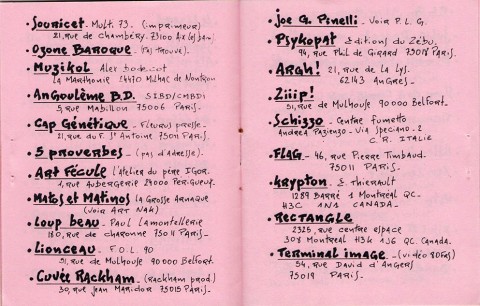 • Souricet - Mult. 73. (imprimeur)
21, rue de Chambéry. 73100 Aix les bains.
• Ozone Baroque - (Pas trouvé).
• Muzikol Alex
La Marthonie 24470 Milhac de Nontron
• Angoulême B.D. SIBD/CNBDI
5, rue Mabillon 75006 Paris.
• Cap Génétique - Fleurus presse.
21, rue du F. St Antoine 75011 Paris.
• 5 proverbes - (pas d'adresse).
• Art Fécule l'Atelier du père Igor.
1, rue Aubergerie 24000 Périgueux.
• Matos et Matinos La Grosse Arnaque
(Voir Art Nak)
• Loup beau - Paul Lamontellerie
180, rue de Charonne 75011 Paris-
• Lionceau - F.O.L. 90
51, rue de Mulhouse 90000 Belfort.
• Cuvée Rackham - (Rackham prod)
30, rue Jean Maridor 75015 Paris.
• Joe G. Pinelli - Voir P.L.G.
• Psykopat Editions du Zébu.
94, rue Phil de Girard 75018 Paris
• Argh! 21, rue de la Lys.
62143 Angres.
• Ziiip!
51, rue de Mulhouse 90000 Belfort.
• Schizzo - Centre fumetto
Andrea Pazienza - Via Speciano. 2
C.R. Italie
• FLAG - 46, rue Pierre Timbaud.
75011 Paris.
• Krypton - S. Thierault
1289 Barré 1 Montréal QC.
H3C 1N4 CANADA -
• RECTANGLE
2325, rue centre espace
308 Montréal H3K 1J6 QC. Canada.
• Terminal image - (vidéo BDFAS)
54, rue David d'Angers
75019 Paris.